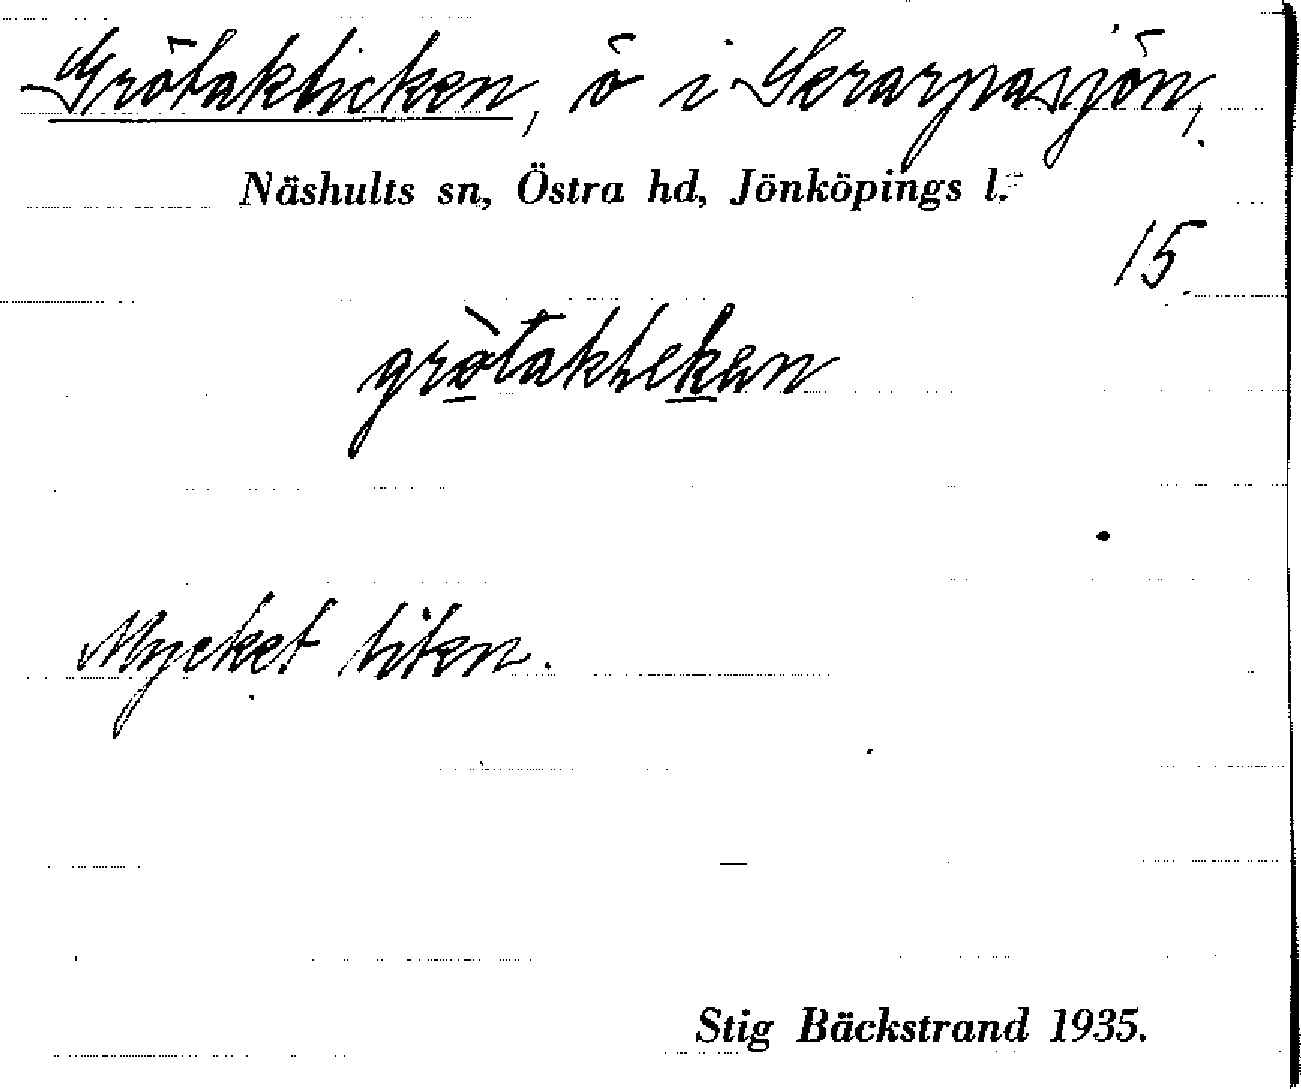 Grötaklicken, ö i Serarpasjön,
Näshults sn, Östra hd, Jönköpings l.
15.
gròtaklekan
Mycket liten.
Stig Bäckstrand 1935.